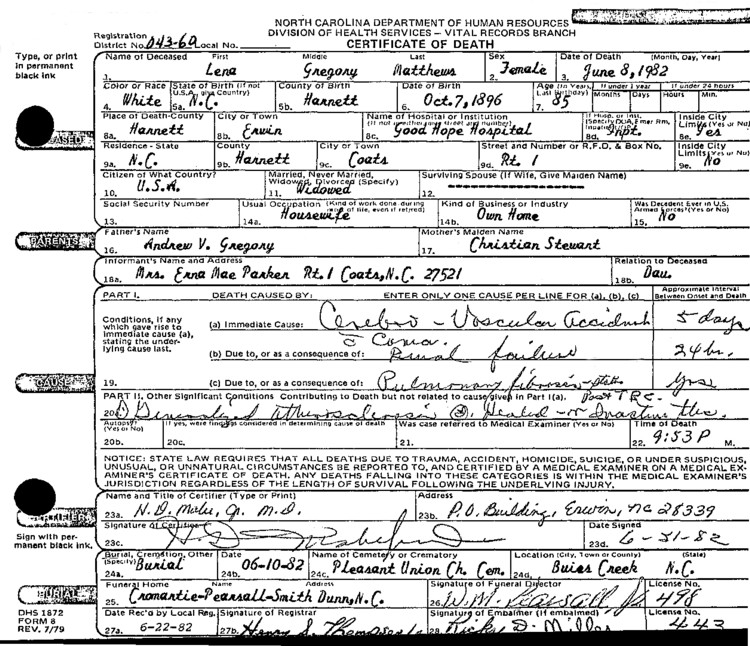 NORTH CAROLINA DEPARTMENT OF HUMAN RESOURCES
DIVISION OF HEALTH SERVICES – VITAL RECORDS BRANCH
CERTIFICATE OF DEATH
Registration District No. 043-60 Local No.
Type, or print in permanent black ink
Name of Deceased First Middle Last Sex Date of Death (Month, Day, Year)
1. Lena Gregory Matthews 2. Female 3. June 8, 1982
Color or Race State of Birth (if not U.S.A., give Country) County of Birth Date of Birth Age (In Years, Last Birthday) If under 1 year Months Days If under 24 hours Hours Min.
4. White 5a. N.C. 5b. Harnett 6. Oct. 7, 1896 7. 85
Place of Death-County City or Town Name of Hospital or Institution (If not in either, give street and number) If Hosp. or Inst. (Specify DOA, Emer Rm, Inpatient) Inside City Limits (Yes or No)
8a. Harnett 8b. Erwin 8c. Good Hope Hospital 8d. Inpt. 8e. Yes
Residence - State County City or Town Street and Number or R.F.D. & Box No. Inside City Limits (Yes or No)
9a. N.C. 9b. Harnett 9c. Coats 9d. Rt. 1 9e. No
Citizen of What Country? Married, Never Married, Widowed, Divorced (Specify) Surviving Spouse (If Wife, Give Maiden Name)
10. U.S.A. 11. Widowed 12.
Social Security Number Usual Occupation (Kind of work done during most of life, even if retired) Kind of Business or Industry Was Decedent Ever in U.S. Armed Forces? (Yes or No)
13. 14a. Housewife 14b. Own Home 15. No
PARENTS
Father's Name Mother's Maiden Name
16. Andrew V. Gregory 17. Christian Stewart
Informant's Name and Address Relation to Deceased
18a. Mrs. Erna Mae Parker Rt. 1 Coats, N.C. 27521 18b. Dau.
PART I. DEATH CAUSED BY: ENTER ONLY ONE CAUSE PER LINE FOR (a), (b), (c) Approximate Interval Between Onset and Death
Conditions, if any which gave rise to immediate cause (a), stating the underlying cause last.
(a) Immediate Cause: Cerebro - Vascular Accident 5 days
Coma.
(b) Due to, or as a consequence of: Renal failure 24 hr.
CAUSE
19. (c) Due to, or as a consequence of: Pulmonary fibrosis yrs
PART II. Other Significant Conditions Contributing to Death but not related to cause given in Part I(a).
20a. Generalized Atherosclerosis Healed Inactive
Autopsy? (Yes or No) If yes, were findings considered in determining cause of death Was case referred to Medical Examiner (Yes or No) Time of Death
20b. 20c. 21. 22. 9:53 P M.
NOTICE: STATE LAW REQUIRES THAT ALL DEATHS DUE TO TRAUMA, ACCIDENT, HOMICIDE, SUICIDE, OR UNDER SUSPICIOUS,
UNUSUAL, OR UNNATURAL CIRCUMSTANCES BE REPORTED TO, AND CERTIFIED BY A MEDICAL EXAMINER ON A MEDICAL EX-
AMINER'S CERTIFICATE OF DEATH. ANY DEATHS FALLING INTO THESE CATEGORIES IS WITHIN THE MEDICAL EXAMINER'S
JURISDICTION REGARDLESS OF THE LENGTH OF SURVIVAL FOLLOWING THE UNDERLYING INJURY.
Name and Title of Certifier (Type or Print) Address
CERTIFIER
23a. M.D. 23b. P.O. Building, Erwin, NC 28339
Sign with permanent black ink.
Signature of Certifier Date Signed
23c. 23d. 6-21-82
Burial, Cremation, Other (Specify) Date Name of Cemetery or Crematory Location (City, Town or County) (State)
24a. Burial 24b. 06-10-82 24c. Pleasant Union Ch. Cem. 24d. Buies Creek N.C.
BURIAL
Funeral Home Name Address Signature of Funeral Director License No.
25. Cromartie-Pearsall-Smith Dunn, N.C. 26. W.M. Pearsall, Jr. 498
DHS 1872
FORM 8
REV. 7/79
Date Rec'd by Local Reg. Signature of Registrar Signature of Embalmer (If embalmed) License No.
27a. 6-22-82 27b. 28. 443